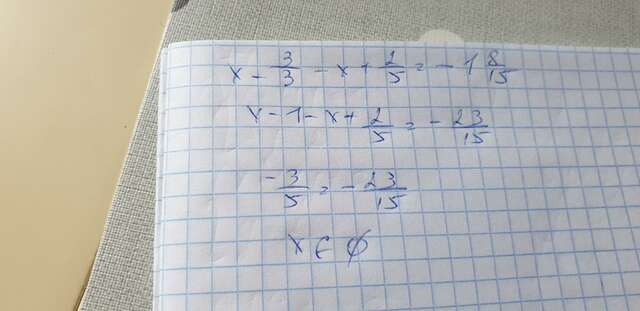 x - 3/3 - x + 2/5 = - 1 8/15
x - 1 - x + 2/5 = - 23/15
- 3/5 = - 23/15
x ∈ ∅